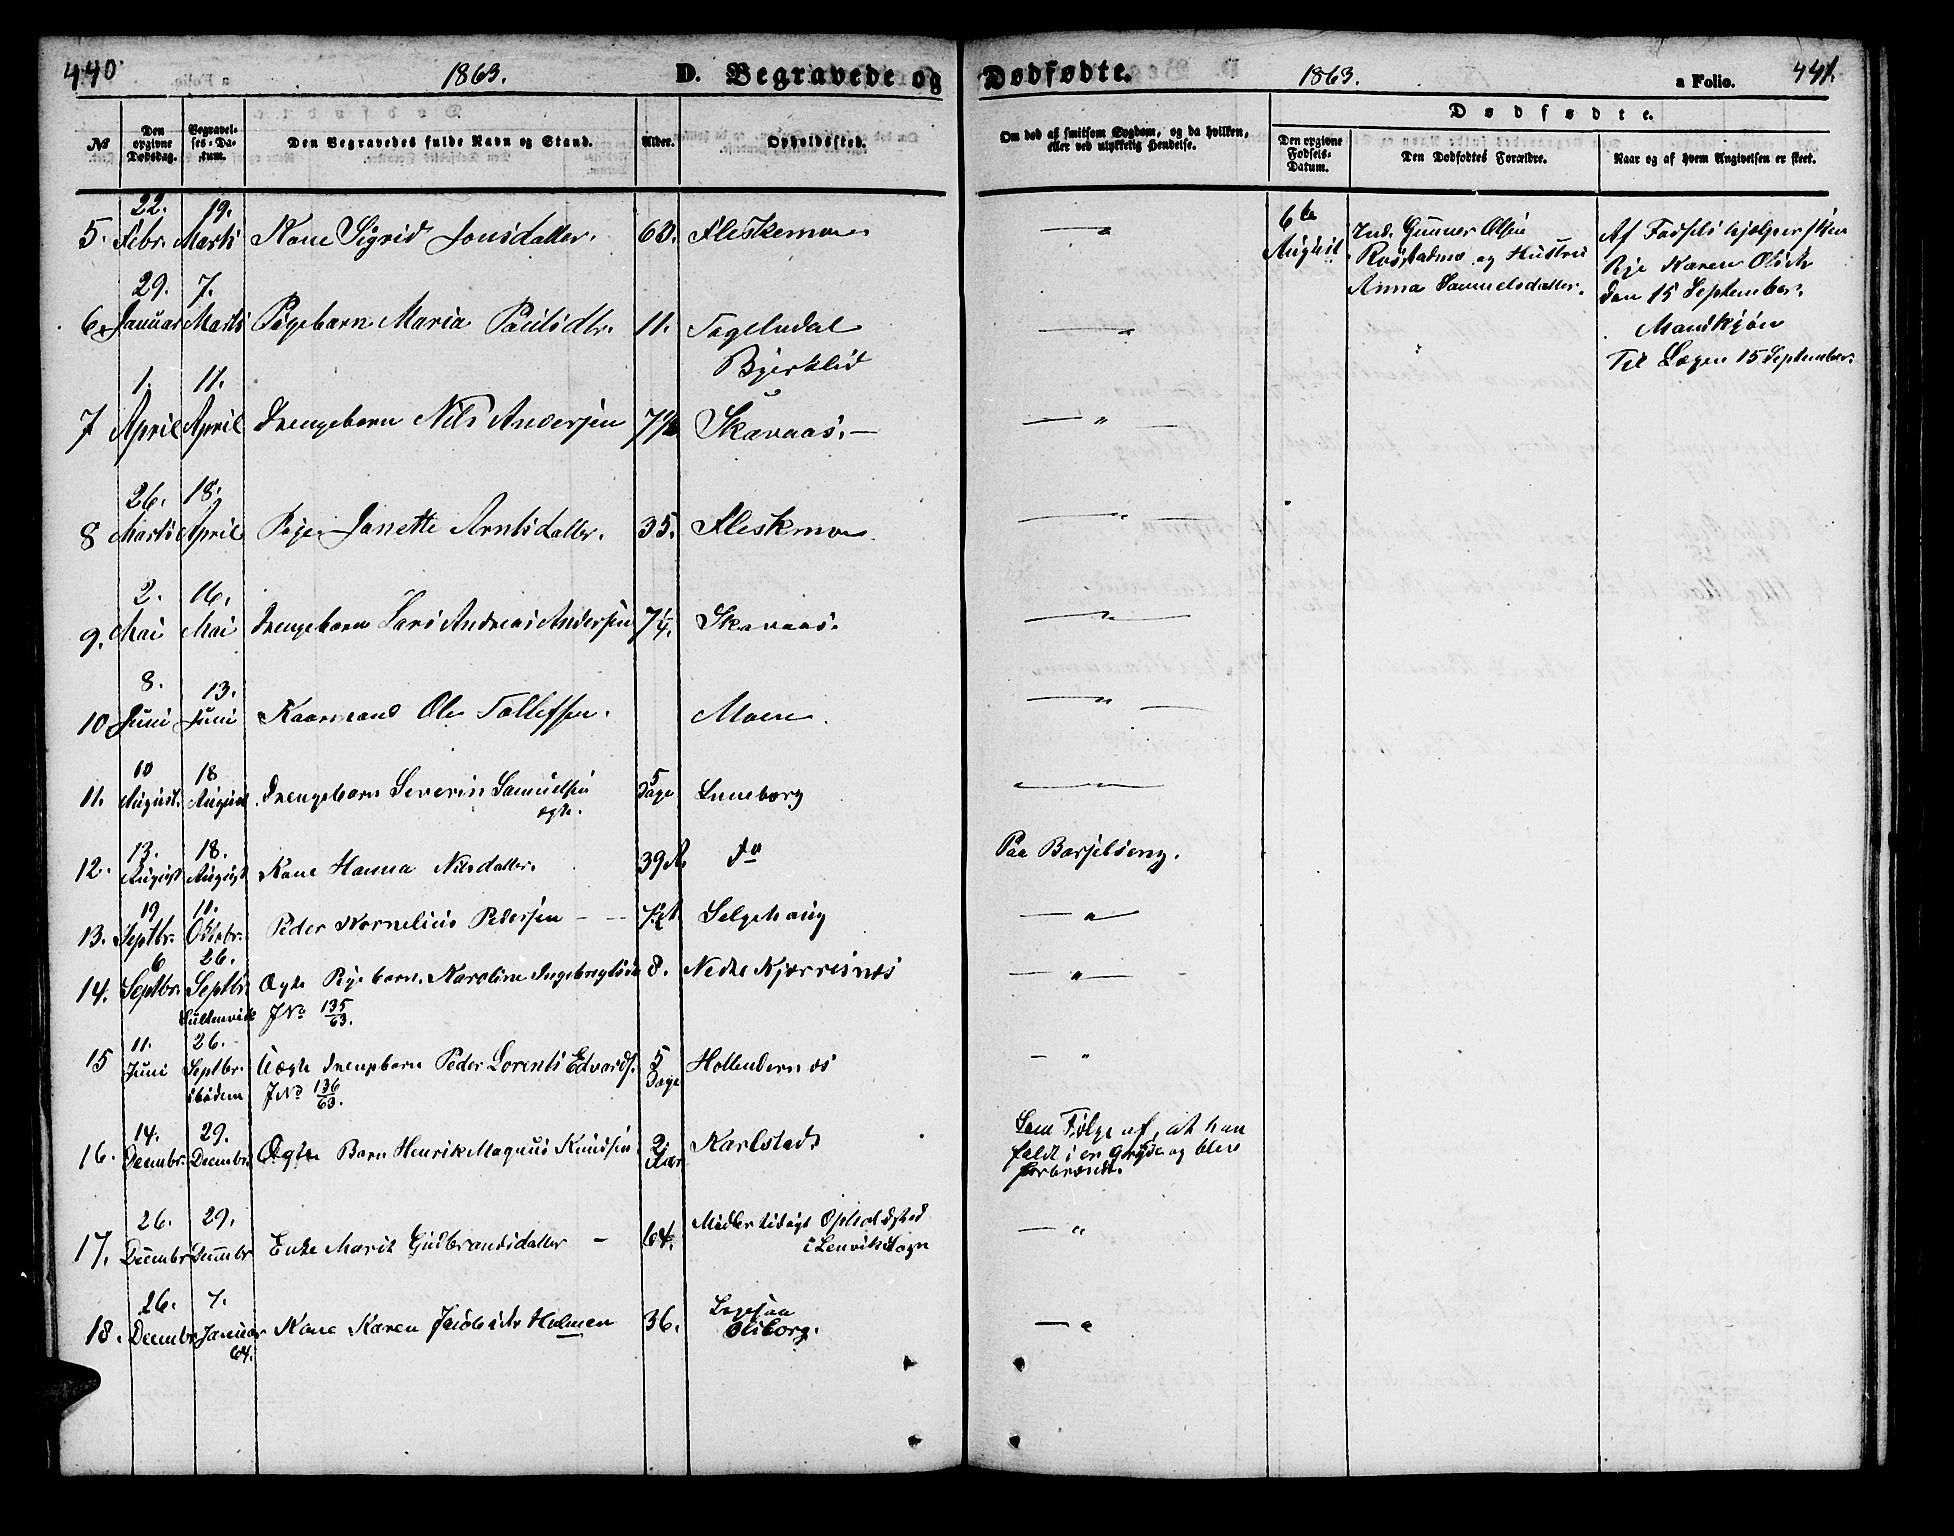 440. 1863. D. Begravede og Dødfødte. 1863. a Folio. 441.
No
Den opgivne Dødsdag.
Begravelses-Datum.
Den Begravedes fulde Navn og Stand.
Alder.
Opholdssted.
Om død af smitsom Sygdom, og da hvilken, eller ved ulykkelig Hendelse.
Dødfødte.
Den opgivne Fødsels-Datum.
Den Dødfødtes Forældre.
Naar og af hvem Angivelsen er skeet.
5. 22. Febr. 19. Marts Kone Sigrid Jonsdatter. 60. Fleskemoe "
6. 29. Januar 7. Marts Pigebarn Maria Paulsdtr. 11. Fagelidal
Bjerklid "
7 1. April 11. April Drengebarn Nils Andersen 7 1/2 Skavaas. "
8 26. Marts 18. April Pige Janette Arntsdatter. 35. Fleskmoe "
9. 2. Mai 16. Mai Drengebarn Lars Andreas Andersen 7 1/4. Skavaas. "
10 8. Juni 13. Juni Kaarmand Ole Tollefsen. Moen. "
11. 10 August. 18 August Drengebarn Severin Samuelsen
ægte. 5 Dage Luneborg "
12. 13. August 18. August Kone Hanna Nilsdatter. 39 A do Paa Barselseng.
13. 19 Septbr. 11. Oktobr. Peder Kornelius Pedersen Selgehaug "
14. 6 Septbr. 26. Septbr. Ægte Pigebarn Karoline Ingebregtsd. 8. Nedre Kjærresnæs "
JNo 135/63.
15 11. Juni 26. Septbr. Uægte Drengebarn Peder Lorents Edvards. 5 Dage Hollendernæs "
JNo 136/63.
16. 14. Decembr. 29. Decembr. Ægte Barn Henrik Magnus Knudsen. 2 Aar Karlstad Som Følge af, at han
faldt i en Gryde og blev
forbrændt.
17. 26. Decembr 29. Decembr Enke Marit Gudbrandsdatter 64. Midlertidigt Opholdsted
i Lenviks Sogn "
18. 26. Decembr 7. Januar
64. Kone Karen Jacobsdtr Holmen 36.
Olsborg. "
6te August
Ind. Gunner Olsen
Rostadmo og Hustru
Anna Samuelsdatter.
Af Fødselshjælpersken
Pige Karen Olsdtr
den 15 September.
Mandkjøn
Til Lægen 15 September.